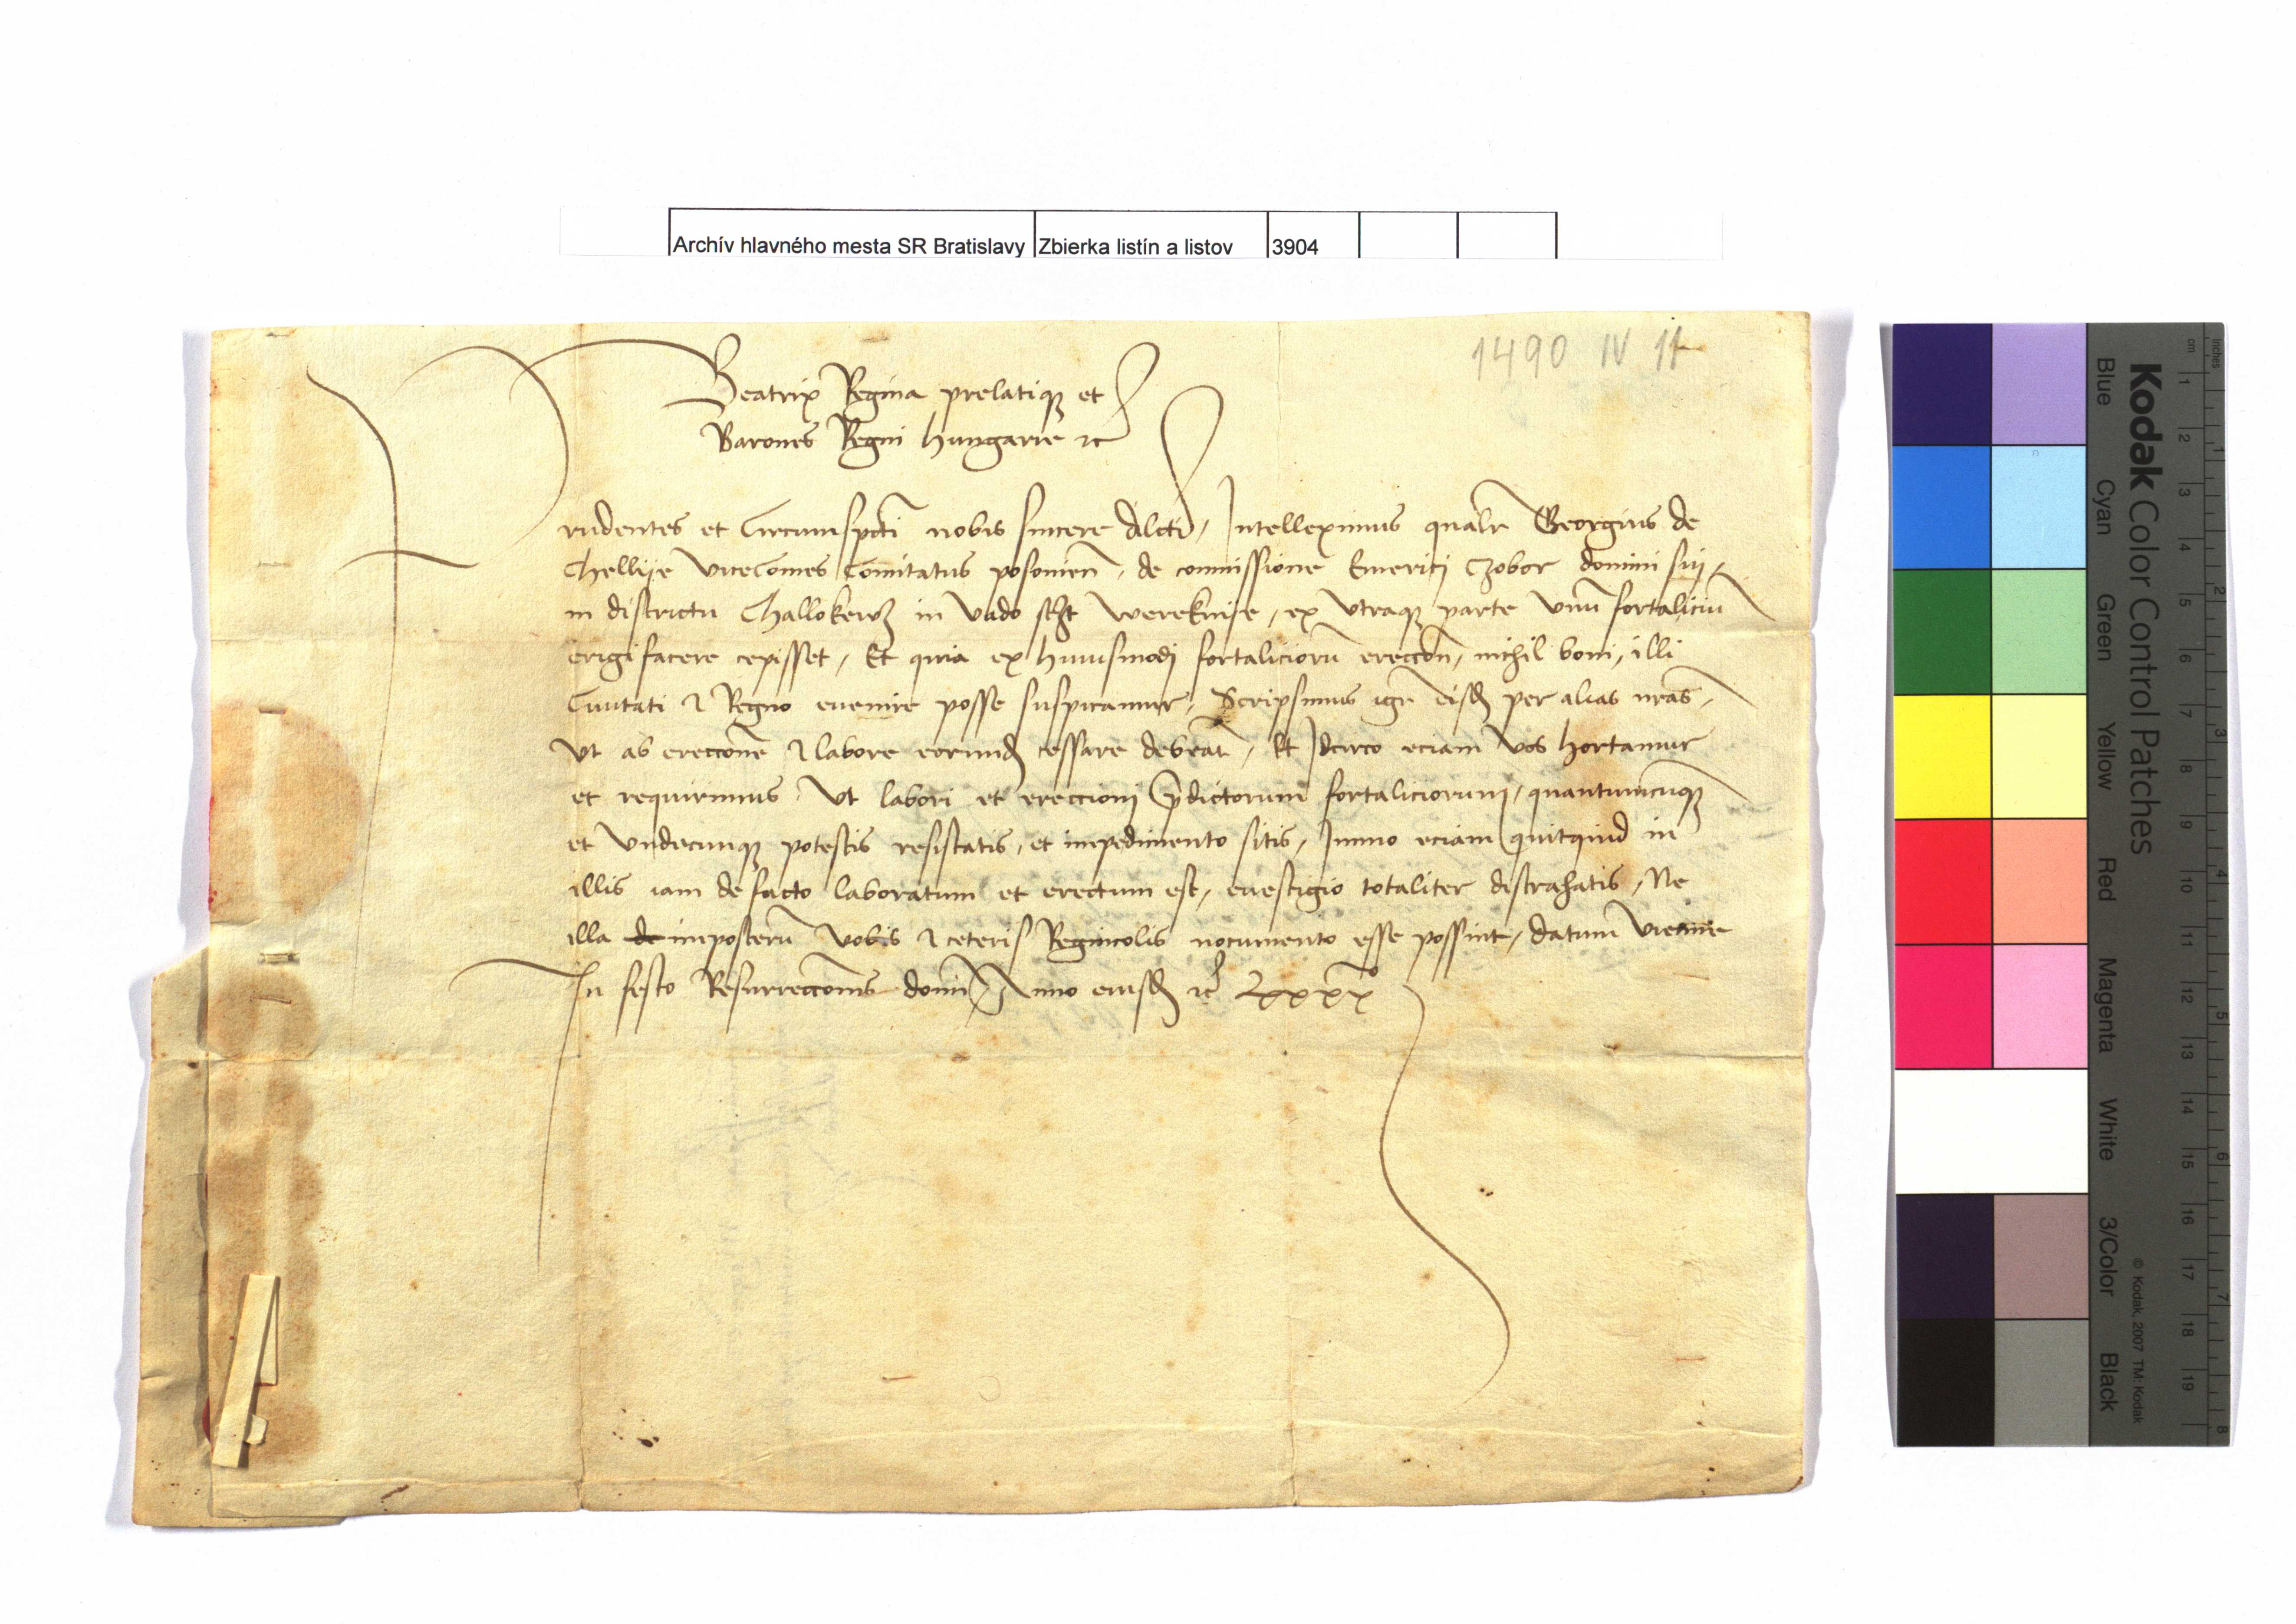 Archív hlavného mesta SR Bratislavy Zbierka listín a listov 3904
1490 IV 11
Beatrix Regina prelatiq₃ et
Barones Regni hungarie ꝛc
Prudentes et Circumspcti nobis sincere dilcti / Intelleximus qualr Georgius de
Chellije vicecomes Comitatus posonien̄ / de commissione Emerici Czobor domini sui /
in districtu Challokewz in vado wereknije / ex vtraq₃ parte vnū fortaliciū
erigi facere cepisset / Et quia ex huiusmodi fortaliciorū ereccōn / nichil boni / illi
Ciuitati ⁊ Regno euenire posse suspicamur / Scripsimus igr eisd per alias nr̄as /
vt ab ereccione ⁊ labore eorund cessare debeat / Et Idcirco eciam vos hortamur
et requirimus vt labori et ereccioni p̄dictorum fortaliciorum / quantumcunq₃
et vndecunq₃ potestis resistatis / et impedimento sitis / Immo eciam quitquid in
illis iam de facto laboratum et erectum est / euestigio totaliter distrahatis / Ne
illa de imposterū vobis ⁊ ceteris Regnicolis nocumento esse possint / datum vienne
In festo Resurreccōnis domīni / Anno eiusd ꝛc Lxxxxº
Kodak Color Control Patches
Blue Cyan Green Yellow Red Magenta White 3/Color Black
© Kodak, 2007 TM: Kodak
inches 1 2 3 4 5 6 7 8
cm 1 2 3 4 5 6 7 8 9 10 11 12 13 14 15 16 17 18 19